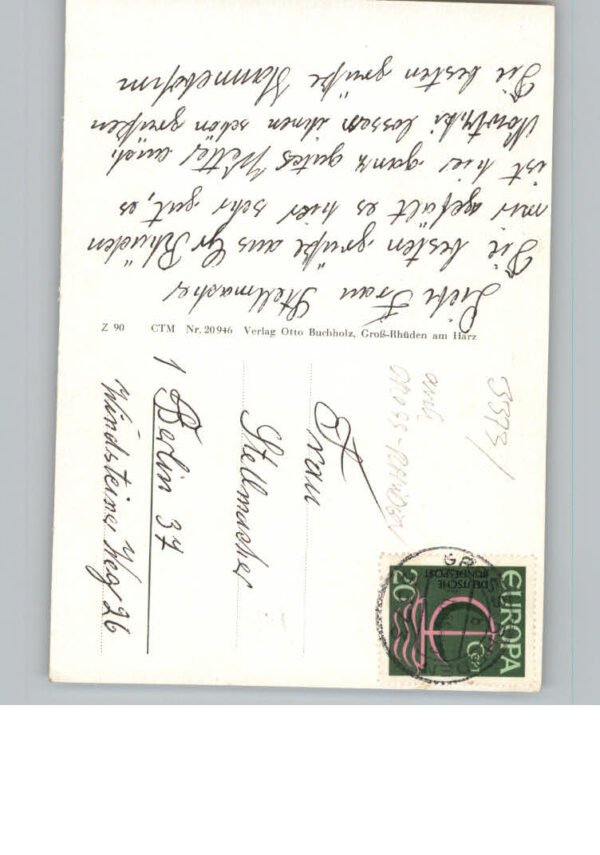 Liebe Frau Stellmacher
Die besten grüße aus Gr Rhüden
mir gefält es hier sehr gut, es
ist hier ganz gutes Wetter auch
lassen ihnen schön grüßen
Die besten grüße
Z 90 CTM Nr. 20946 Verlag Otto Buchholz, Groß-Rhüden am Harz
Frau
Stellmacher
1 Berlin 37
Windsteiner Weg 26
3373/
GROSS-RHÜDEN
EUROPA
Cept
DEUTSCHE
BUNDESPOST
20